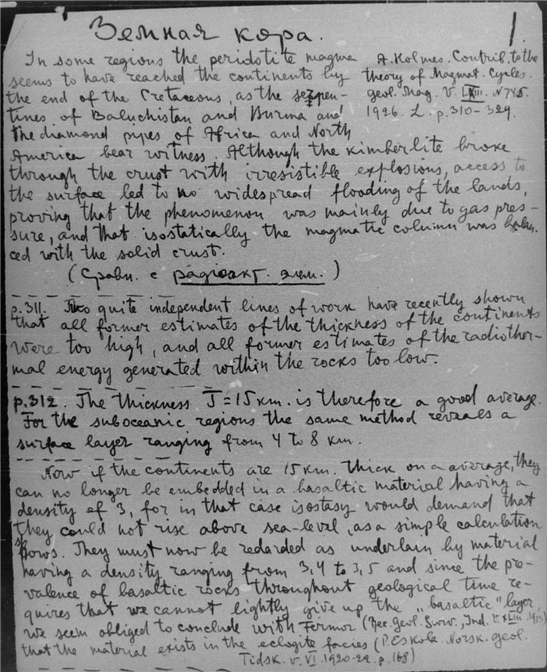 Земная кора.
1.
In some regions the peridotite magma
seems to have reached the continents by
the end of the Cretaceous, as the serpen-
tines of Baluchistan and Burma and
the diamond pipes of Africa and North
A. Holmes. Contrib. to the
theory of Magmat. Cycles.
geol. Mag. V. LXIII. N 745.
1926. L. p. 310-329.
America bear witness. Although the kimberlite broke
through the crust with irresistible explosions, access to
the surface led to no widespread flooding of the lands,
proving that the phenomenon was mainly due to gas pres-
sure, and that isostatically the magmatic column was balan-
ced with the solid crust.
(Сравн. с радіоакт. элем.)
p. 311. Two quite independent lines of work have recently shown
that all former estimates of the thickness of the continents
were too high, and all former estimates of the radiother-
mal energy generated within the rocks too low.
p. 312. The thickness J=15 km. is therefore a good average.
For the suboceanic regions the same method reveals a
surface layer ranging from 4 to 8 km.
Now if the continents are 15 km. thick on a average, they
can no longer be embedded in a basaltic material having a
density of 3, for in that case isostasy would demand that
they could not rise above sea-level, as a simple calculation
shows. They must now be redarded as underlain by material
having a density ranging from 3,4 to 3,5 and since the pre-
valence of basaltic rocks throughout geological time re-
quires that we cannot lightly give up the „basaltic" layer
we seem obliged to conclude with Fermor (Rec. geol. Surv. Ind. V. XLIII.
that the material exists in the eclogite facies (P. Eskola. Norsk. geol.
Tidsk. v. VI. 1920-22. p. 168)